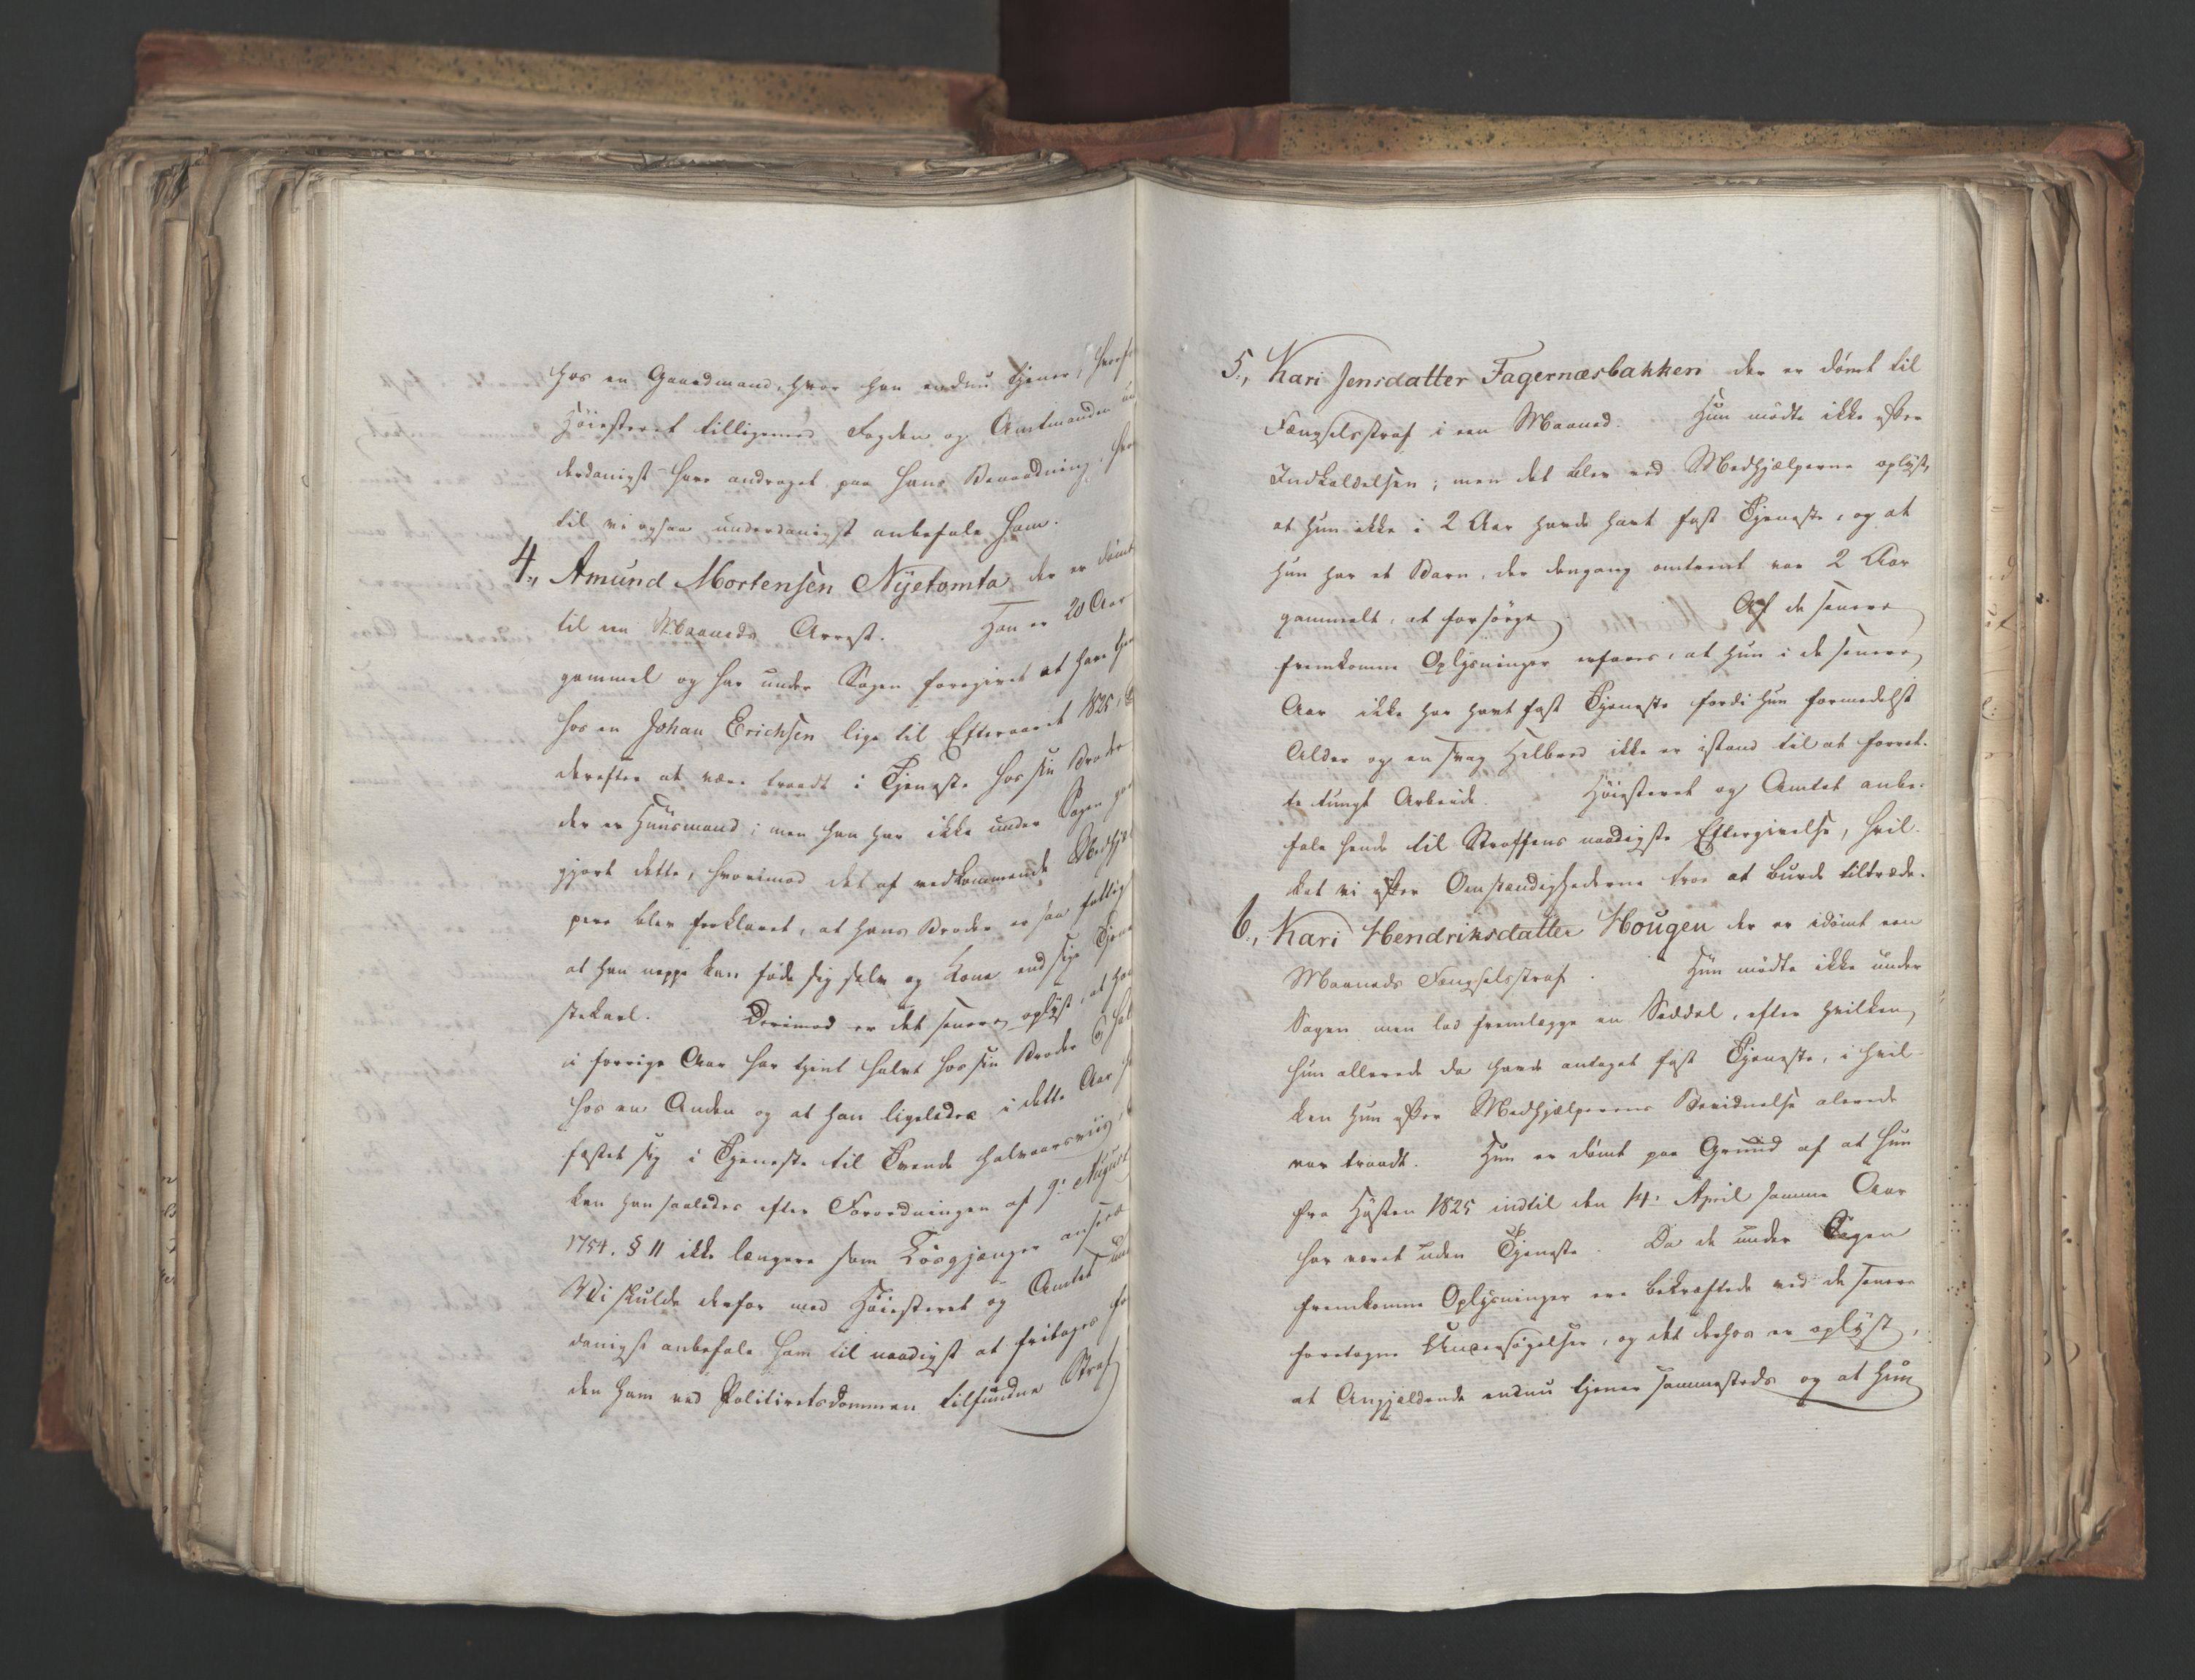 hos en Gaardmand, hvor han endnu tjener,
Høiesteret tilligemed Fogden og Amtmanden un
derdanigst have andraget paa hans Benaadning, hvor
til vi ogsaa underdanigst anbefale ham.
4., Amund Mortensen Nÿetomta der er dømt
til een Maaneds Arrest. Han er 20 Aar
gammel og har under Sagen foregivet at have tjen
hos en Johan Erichsen lige til Efteraaret 1825,
derefter at være traadt i Tjeneste hos sin Broder
der er Huusmand; men han har ikke under Sagen god
gjort dette, hvorimod det af vedkommende Medhjæl
pere blev forklaret, at hans Broder er saa fattig
at han neppe kan føde sig selv og Kone end sige Tjene
stekarl. Derimod er det senere oplÿst, at han
i forrige Aar har tjent halvt hos sin Broder og hal
hos en Anden og at han ligeledes i dette Aar har
fæstet sig i Tjeneste til Tvende halvaarsviis,
kan han saaledes efter Forordningen af 9de August
1754. § 11 ikke længere som Løsgjænger ansees
Vi skulde derfor med Høiesteret og Amtet under
danigst anbefale ham til naadigst at fritages for
den ham ved Politiretsdommen tilfundne Straf
5., Kari Jensdatter Fagernæsbakken der er dømt til
Fængselsstraf i een Maaned. Hun mødte ikke efter
Indkaldelsen; men det blev ved Medhjælperne oplÿst,
at hun ikke i 2 Aar havde havt fast Tjeneste, og at
hun har et Barn, der dengang omtrent var 2 Aar
gammelt, at forsørge. Af de senere
fremkomne Oplÿsninger erfares, at hun i de senere
Aar ikke har havt fast Tjeneste fordi hun formedelst
Alder og en svag Helbred ikke er istand til at forret-
te tungt Arbeide. Høiesteret og Amtet anbe-
fale hende til Straffens naadigste Eftergivelse, hvil-
ket vi efter Omstændighederne troe at burde tiltræde.
6., Kari Hendriksdatter Hougen der er idømt een
Maaneds Fængselsstraf. Hun mødte ikke under
Sagen men lod fremlægge en Seddel, efter hvilken
hun allerede da havde antaget fast Tjeneste, i hvil-
ken hun efter Medhjælperens Bevidnelse alerede
var traadt. Hun er dømt paa Grund af at hun
fra Høsten 1825 indtil den 14de April samme Aar
har været uden Tjeneste. Da de under Sagen
fremkomne Oplÿsninger ere bekræftede ved de senere
foretagne Undersøgelser, og det derhos er oplÿst,
at Angjældende endnu tjener sammesteds og at hun